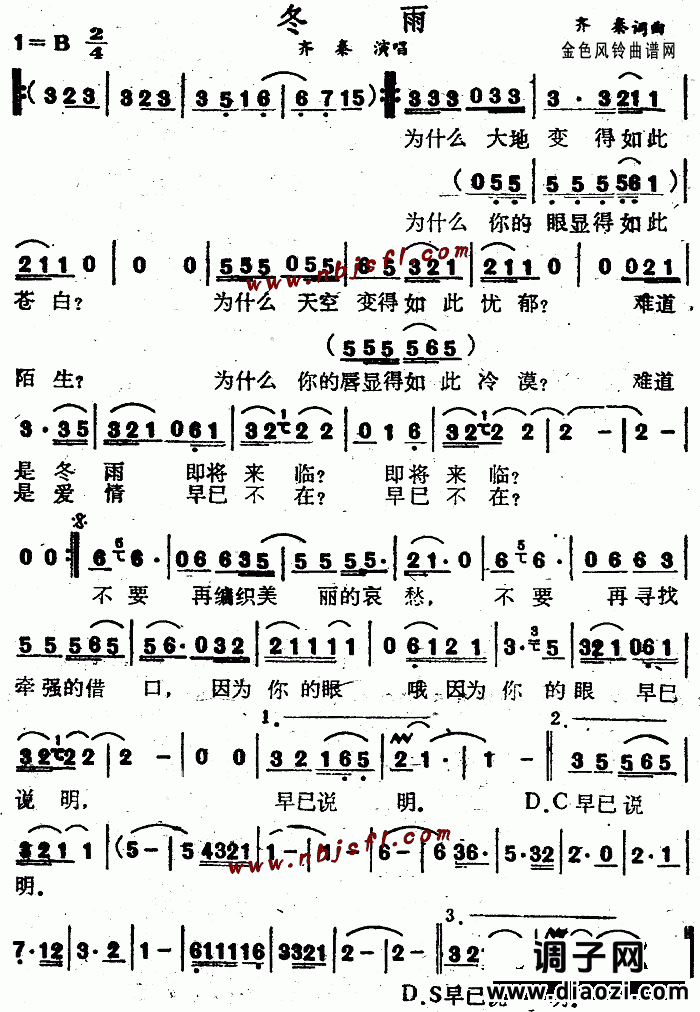 冬 雨
1=B 2/4
齐 秦 演唱
齐 秦 词曲
金色风铃曲谱网
( 323 | 323 | 3516 | 6 715 ) 333 033 | 3· 3211 |
为什么 大地 变 得如此
( 055 | 55 5561 )
为什么 你的 眼显得如此
2110 | 0 0 | 555 055 | 65 321 | 2110 | 0 021 |
苍白? 为什么 天空 变得如此忧郁? 难道,
( 555 565 )
陌生? 为什么 你的唇显得如此冷漠? 难道
3·35 | 321 061 | 32 1 22 | 01 6 | 32 1 22 | 2 - | 2 - |
是冬雨 即将来临? 即将来临?
是爱情 早已不在? 早已不在?
0 0 6 6· | 06 635 | 5 55 55· | 21· 0 | 6 6· | 06 6 3 |
不要 再编织美 丽的哀愁, 不要 再寻找
55 565 | 56· 032 | 21111 | 0 6121 | 3· 3 5 | 321 061 |
牵强的借口, 因为你的眼 哦因为你的眼 早已
32 1 22 | 2 - | 0 0 | 32 165 | 21· | 1 - | 35 565 |
1.
2.
说明, 早已说 明. D.C早已说
321 1 | (5 - | 5 4321 | 1 - | 1 - | 6 - | 6 36· | 5·32 | 2·0 | 2·1 |
www.nbjsfl.com
明.
7·12 | 3·2 | 1 - | 611116 | 3321 | 2 - | 2 - ) | 32
3.
D.S早已说 明.
调子网
www.daozi.com